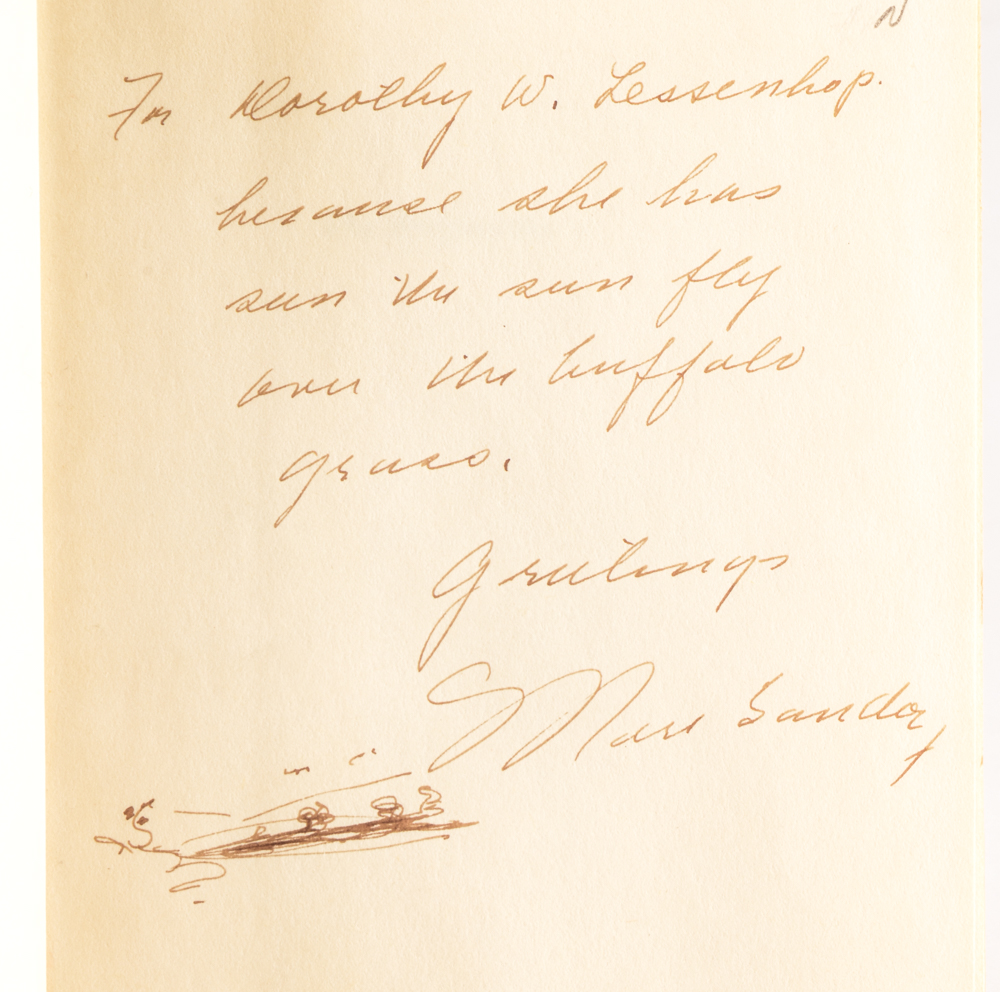 N
For Dorothy W. Lessenhop.
because she has
seen the sun fly
over the buffalo
grass.
Greetings
Mari Sandoz